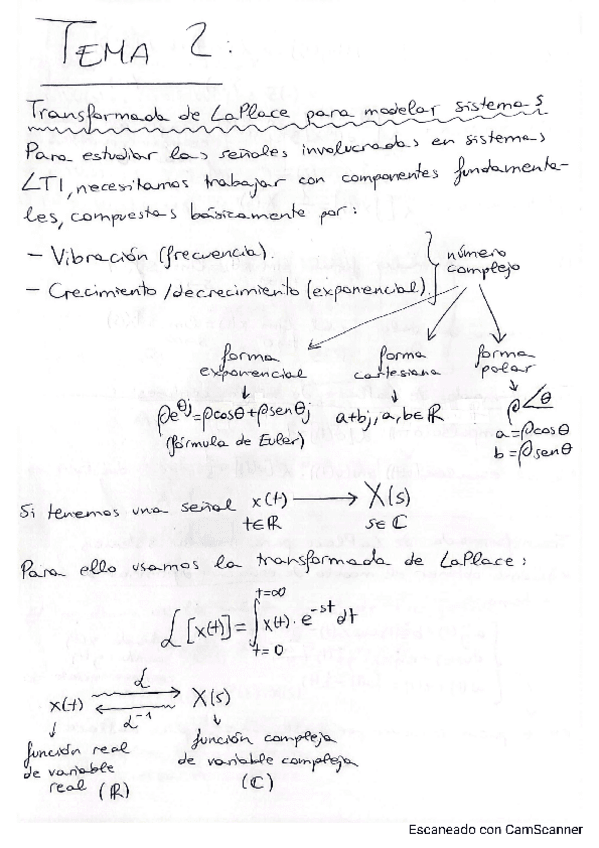 TEMA 2:
Transformada de LaPlace para modelar sistemas
Para estudiar las señales involucradas en sistemas
LTI, necesitamos trabajar con componentes fundamenta-
les, compuestas básicamente por:
- Vibración (frecuencia).
- Crecimiento/decrecimiento (exponencial).
número
complejo
forma
exponencial
ρe^θj = ρcosθ + ρsenθj
(fórmula de Euler)
forma
cartesiana
a+bj, a,b∈ℝ
forma
polar
ρ∠θ
a=ρcosθ
b=ρsenθ
Si tenemos una señal x(t) → X(s)
t∈ℝ s∈ℂ
Para ello usamos la transformada de LaPlace:
ℒ[x(t)] = ∫_{t=0}^{t=∞} x(t)·e^{-st} dt
x(t) ⇄ X(s)
ℒ
ℒ^-1
↓
función real
de variable
real (ℝ)
↓
función compleja
de variable compleja
(ℂ)
Escaneado con CamScanner